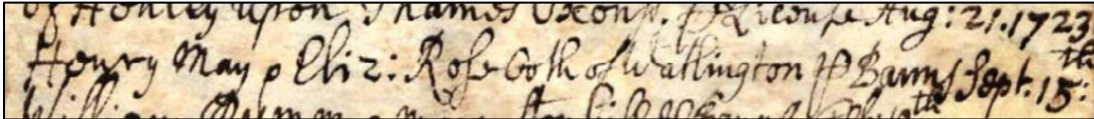 of Henley upon Thames Oxon. P Licence Aug: 21. 1723
Henry May & Eliz: Rose both of Watlington P Banns Sept. 15th: